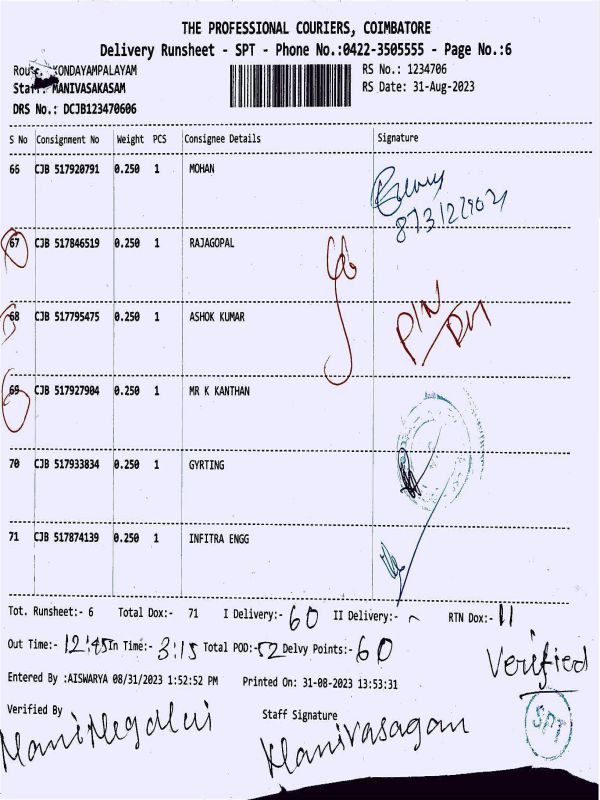 THE PROFESSIONAL COURIERS, COIMBATORE
Delivery Runsheet - SPT - Phone No.:0422-3505555 - Page No.:6
KONDAYAMPALAYAM RS No.: 1234706
MANIVASAKASAM RS Date: 31-Aug-2023
DRS No.: DCJB123470606
S No Consignment No Weight PCS Consignee Details Signature
66 CJB 517920791 0.250 1 MOHAN
67 CJB 517846519 0.250 1 RAJAGOPAL
68 CJB 517795475 0.250 1 ASHOK KUMAR
69 CJB 517927904 0.250 1 MR K KANTHAN
70 CJB 517933834 0.250 1 GYRTING
71 CJB 517874139 0.250 1 INFITRA ENGG
Tot. Runsheet:- 6 Total Dox:- 71 I Delivery:- 60 II Delivery:- RTN Dox:- 11
Out Time:- 12:45 In Time:- 3:15 Total POD:- 52 Delvy Points:- 60
Verified
Entered By :AISWARYA 08/31/2023 1:52:52 PM Printed On: 31-08-2023 13:53:31
Verified By Staff Signature
SPT
Manivasagan